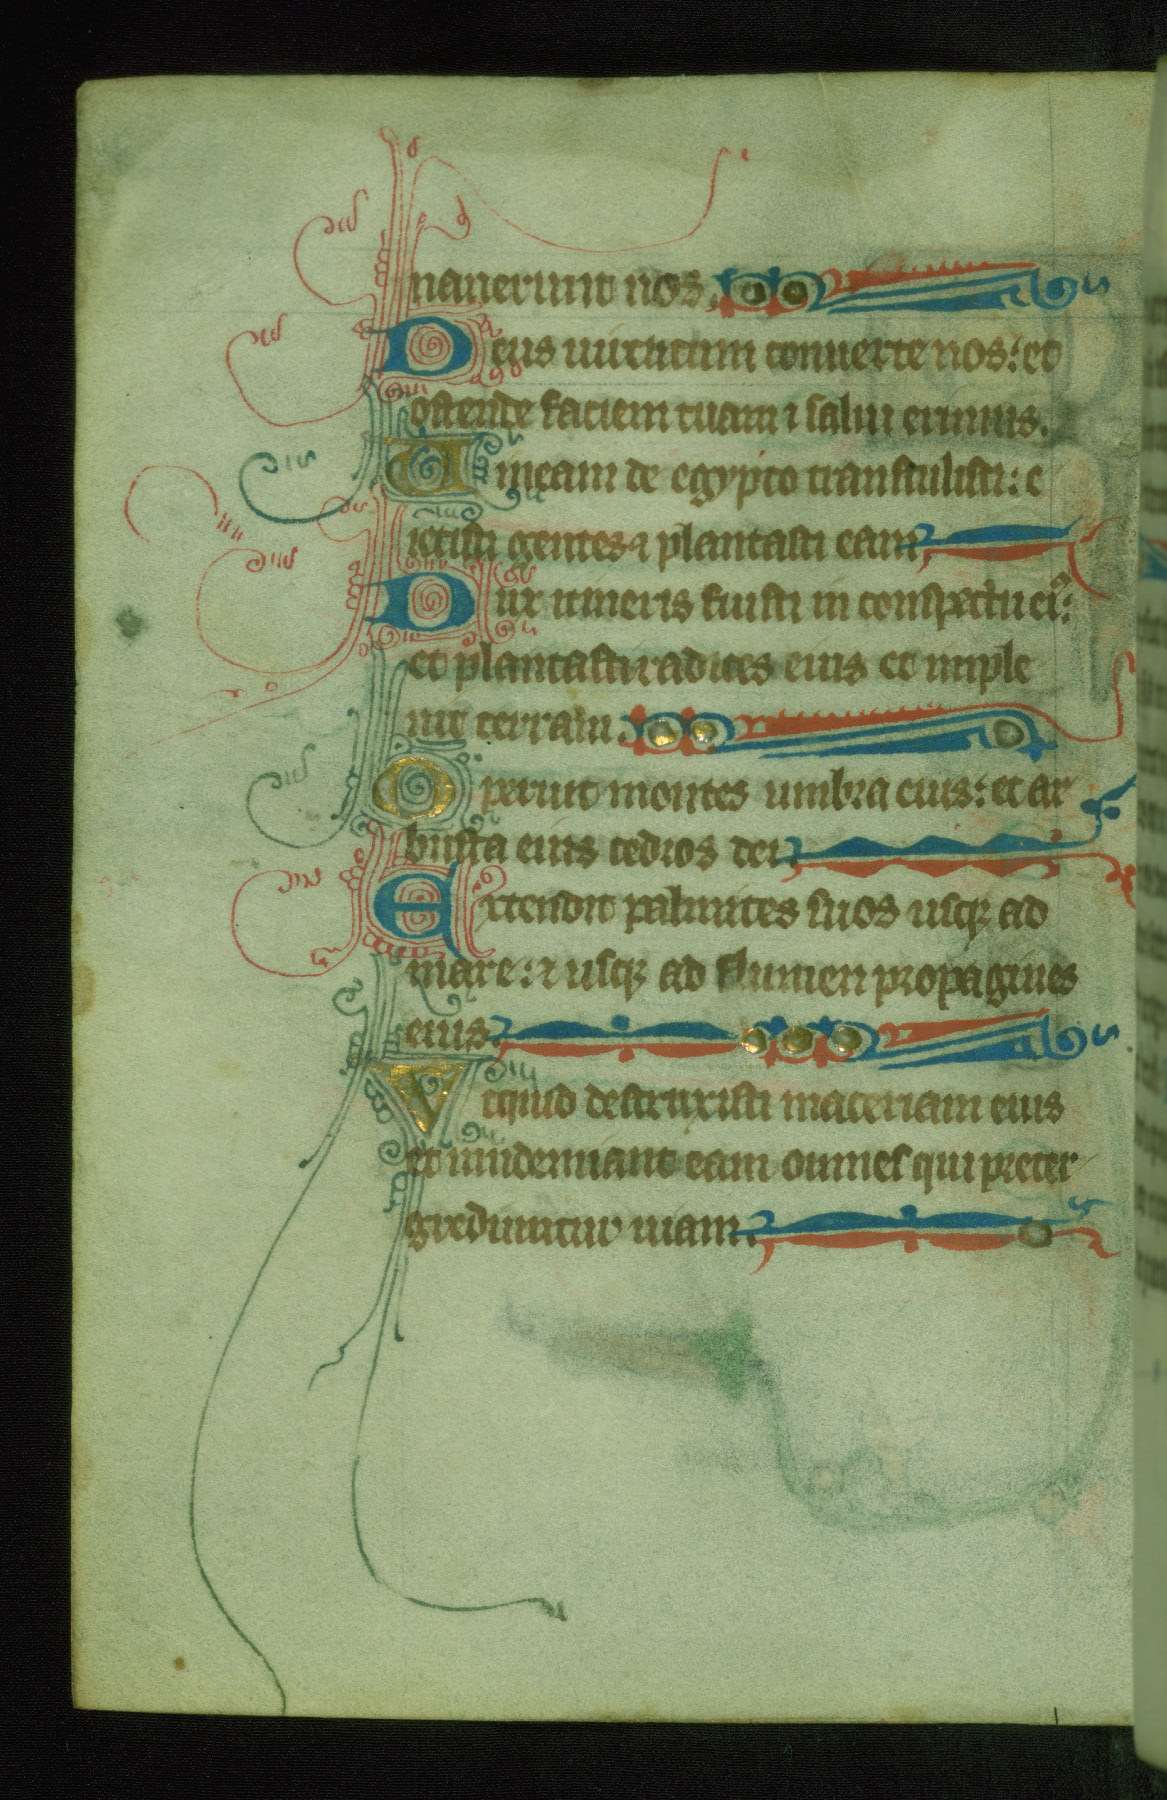 nauerunt nos.
Deus uirtutum conuerte nos: et
ostende faciem tuam ⁊ salui erimus.
Uineam de egypto transtulisti: e
iecisti gentes ⁊ plantasti eam.
Dux itineris fuisti in conspectu eiꝰ:
et plantasti radices eius et imple
uit terram.
Operuit montes umbra eius: et ar
busta eius cedros dei.
Extendit palmites suos usqꝫ ad
mare: ⁊ usqꝫ ad flumen propagines
eius.
Vtquid destruxisti maceriam eius
et uindemiant eam omnes qui preter
grediuntur uiam.